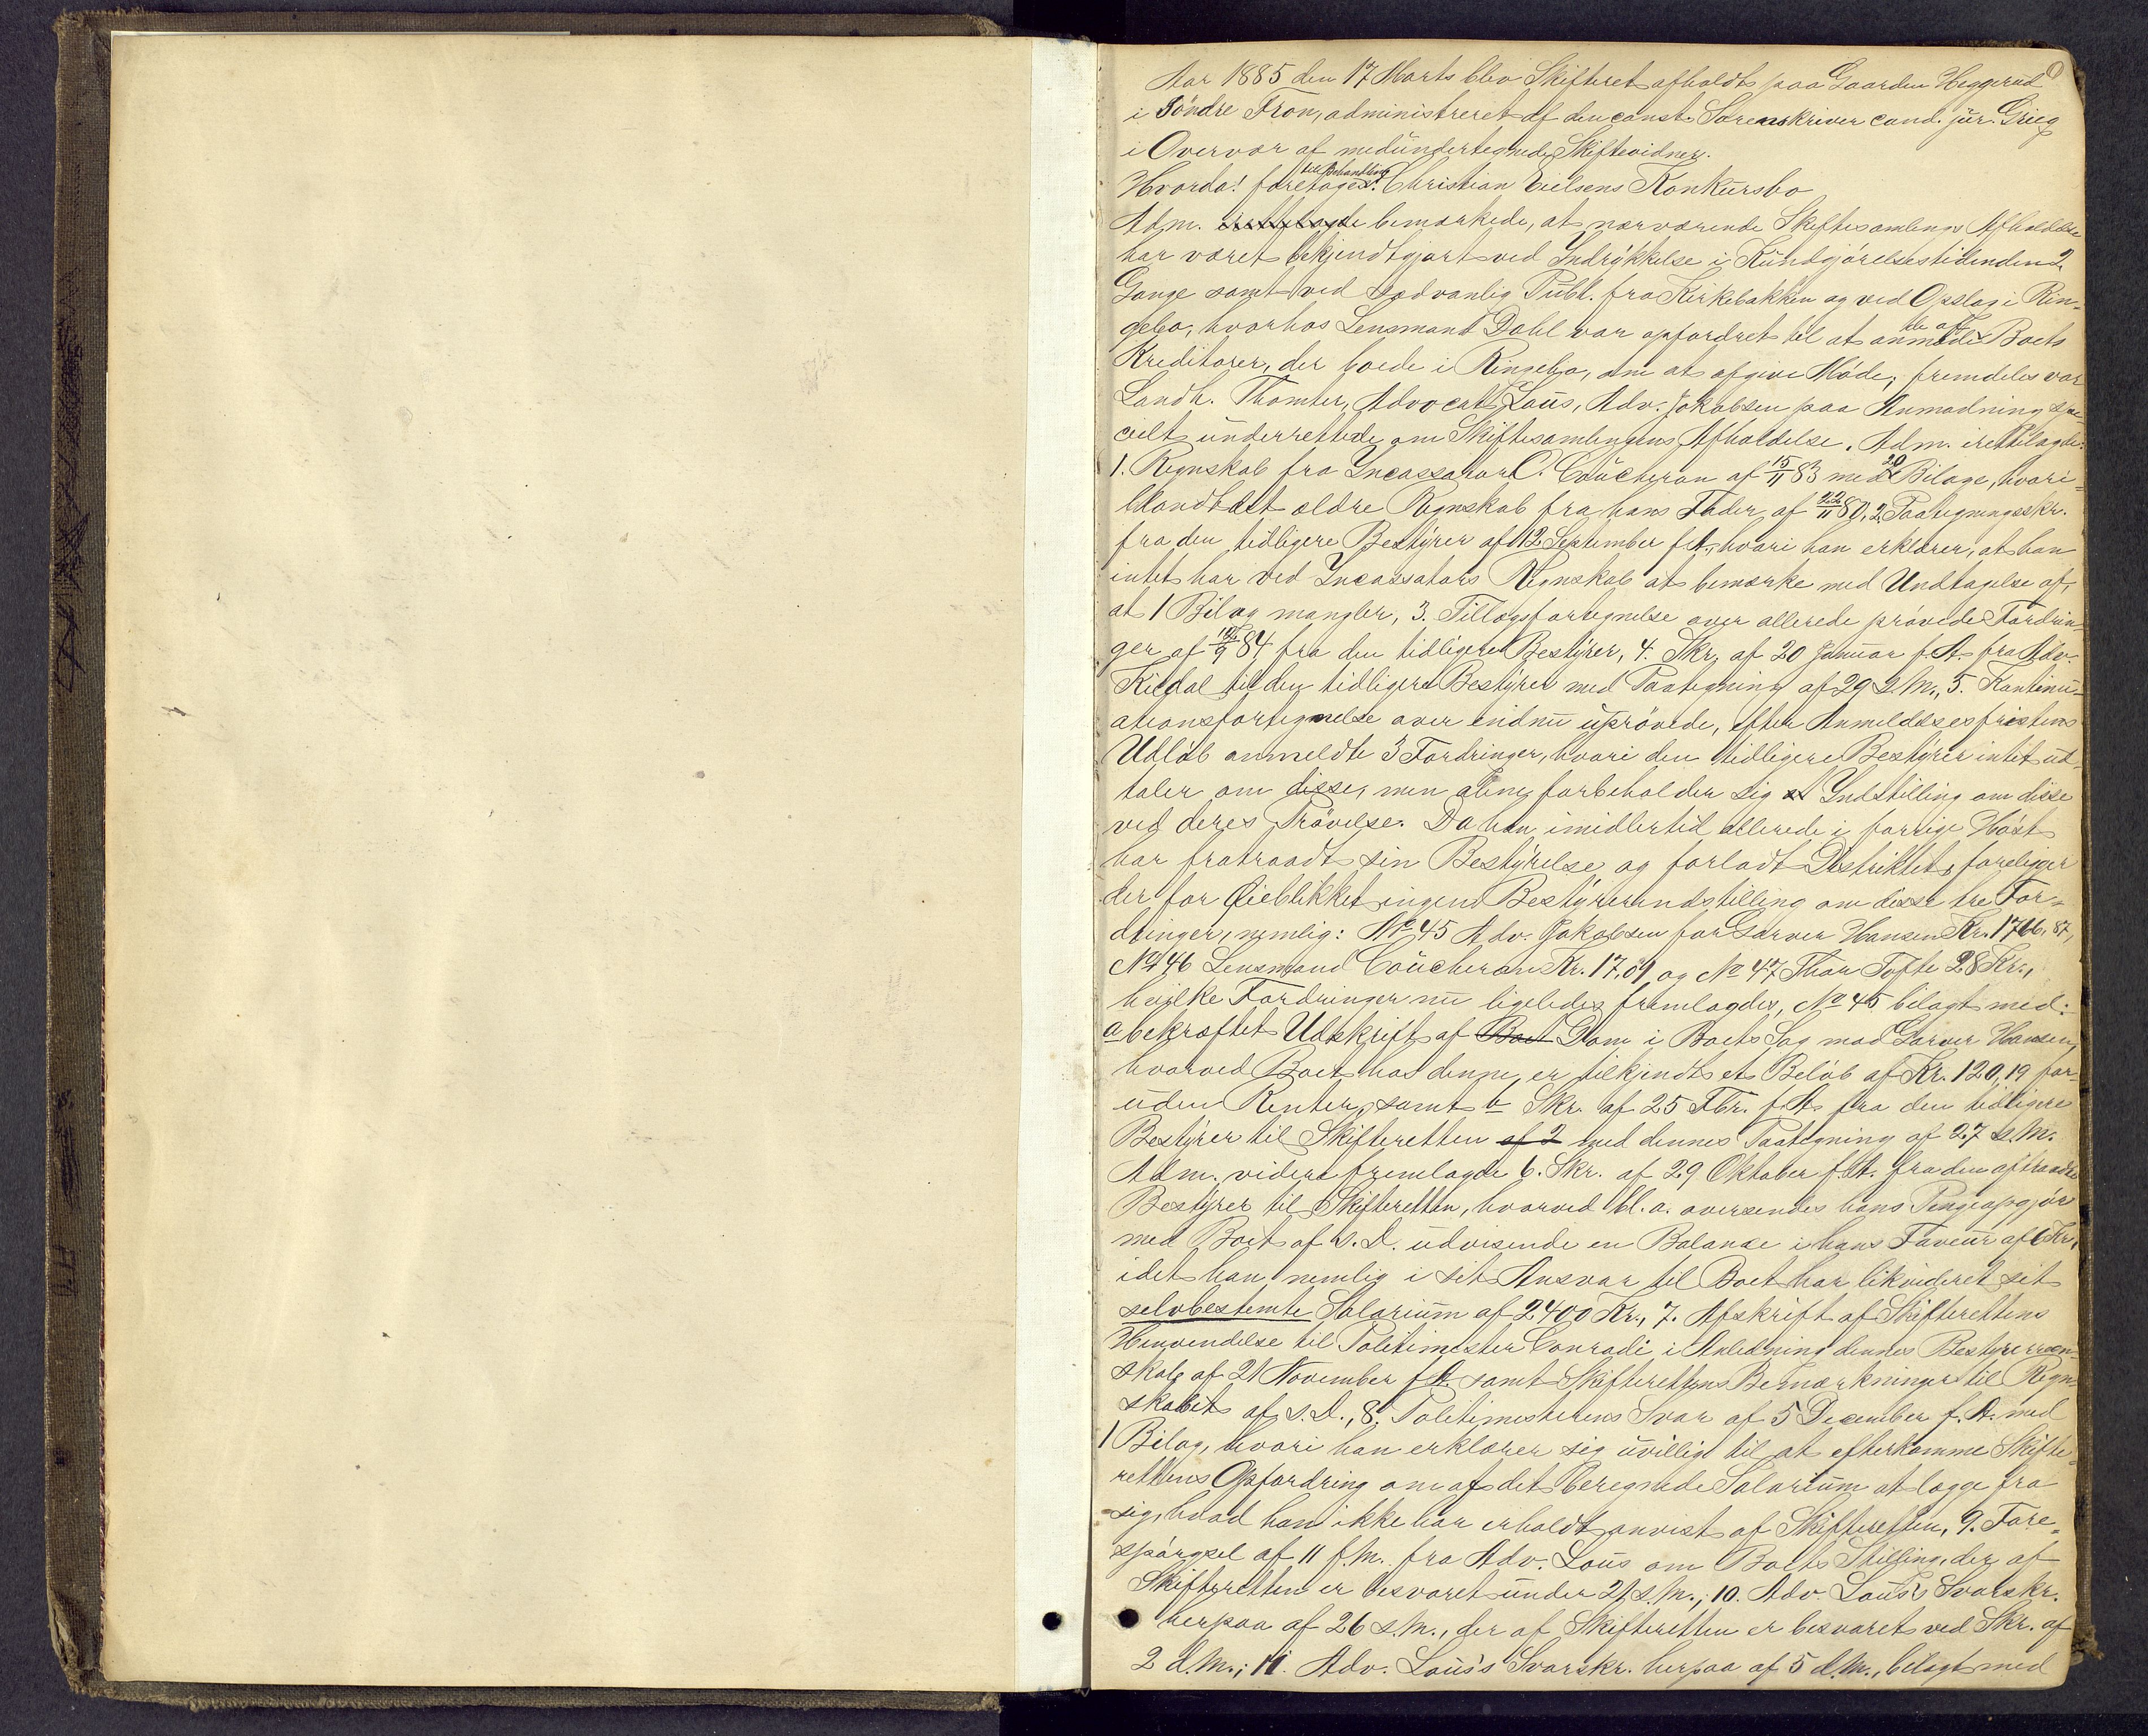 Aar 1885 den 17 Marts blev Skifteret afholdt paa Gaarden Heggerud
i Söndre Fron, administreret af den const. Sorenskriver cand. jur. Grieg
i Overvær af medundertegnede Skiftevidner.
Hvorda! foretoges til Behandling Christian Eielsens Konkursbo
Adm. bemærkede, at nærværende Skiftesamlings Afholdelse
har været bekjendtgjort ved Indrykkelse i Kundgjörelsestidenden 2
Gange samt ved sædvanlig Publ. fra Kirkebakken og ved Opslag i Rin-
gebo, hvorhos Lensmand Dahl var opfordret til at anmode de af Boets
Kreditorer, der boede i Ringebo, om at afgive Möde; fremdeles var
Landh. Thomter, Advocat Lous, Adv. Jakobsen paa Anmodning spe-
cielt underrettede om Skiftesamlingens Afholdelse. Adm. irettelagde:
1. Regnskab fra Incassator C. Coucheron af 15/11 83 med 20 Bilage, hvori-
blandt et ældre Regnskab fra hans Fader af 22/11 80, 2 Paategningsskr.
fra den tidligere Bestyrer af 12 September f. A., hvori han erklærer, at han
intet har ved Incassators Regnskab at bemærke med Undtagelse af,
at 1 Bilag mangler, 3. Tillægsfortegnelse over allerede prövede Fordrin-
ger af 12/9 84 fra den tidligere Bestyrer, 4. Skr. af 20 Januar f. A. fra Adv.
Kildal til den tidligere Bestyrer med Paategning af 29 s. M., 5. Kontinu-
ationsfortegnelse over endnu uprövede, efter Anmeldelsesfristens
Udlöb anmeldte 3 Fordringer, hvori den tidligere Bestyrer intet ud-
taler om disse, men alene forbeholder sig Indstilling om disse
ved deres Prövelse. Da han imidlertid allerede i forrige Höst
har fratraadt sin Bestyrelse og forladt Distriktet, foreligger
der for Öieblikket ingen Bestyrerindstilling om disse tre For-
dringer, nemlig: No 45 Adv. Jakobsen for Garver Hansen Kr. 1766,87,
No 46 Lensmand Coucheron Kr. 17.01 og No 47 Thor Tofte 28 Kr.,
hvilke Fordringer nu ligeledes fremlagdes, No 45 bilagt med:
a bekræftet Udskrift af Boet Dom i Boets Sag mod Garver Hansen,
hvorved Boet hos denne er tilkjendt et Belöb af Kr. 120,19 for-
uden Renter, samt b Skr. af 25 Fbr. f. A. fra den tidligere
Bestyrer til Skifteretten af 2 med dennes Paategning af 27 s. M.
Adm. videre fremlagde 6. Skr. af 29 Oktober f. A. fra den aftraadte
Bestyrer til Skifteretten, hvorved bl. a. oversendes hans Pengeopgjör
med Boet af s. D. udvisende en Balance i hans Faveur af 6 Kr.,
idet han nemlig i sit Ansvar til Boet har likvideret sit
selvbestemte Salarium af 2400 Kr., 7. Afskrift af Skifterettens
Henvendelse til Politimester Conradi i Anledning dennes Bestyrerregn-
skab af 21 November f. A. samt Skifterettens Bemærkninger til Regn-
skabet af s. D., 8. Politimesterens Svar af 5 December f. A. med
1 Bilag, hvori han erklærer sig uvillig til at efterkomme Skifte-
rettens Opfordring om af det beregnede Salarium at lægge fra
sig, hvad han ikke har erholdt anvist af Skifteretten, 9. Fore-
spörgsel af 11 f. M. fra Adv. Lous om Boets Stilling, der af
Skifteretten er besvaret under 21 s. M.; 10. Adv. Lous's Svarskr.
herpaa af 26 s. M., der af Skifteretten er besvaret ved Skr. af
2 d. M.; 11. Adv. Lous's Svarskr. herpaa af 5 d. M., bilagt med